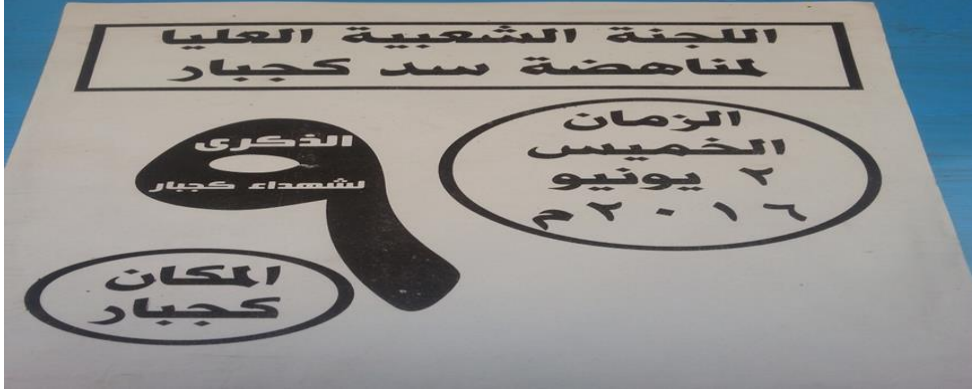 اللجنة الشعبية العليا
لمناهضة سد كجبار
الزمان
الخميس
٢ يونيو
٢٠١٦م
الذكرى
٩
لشهداء كجبار
المكان
كجبار